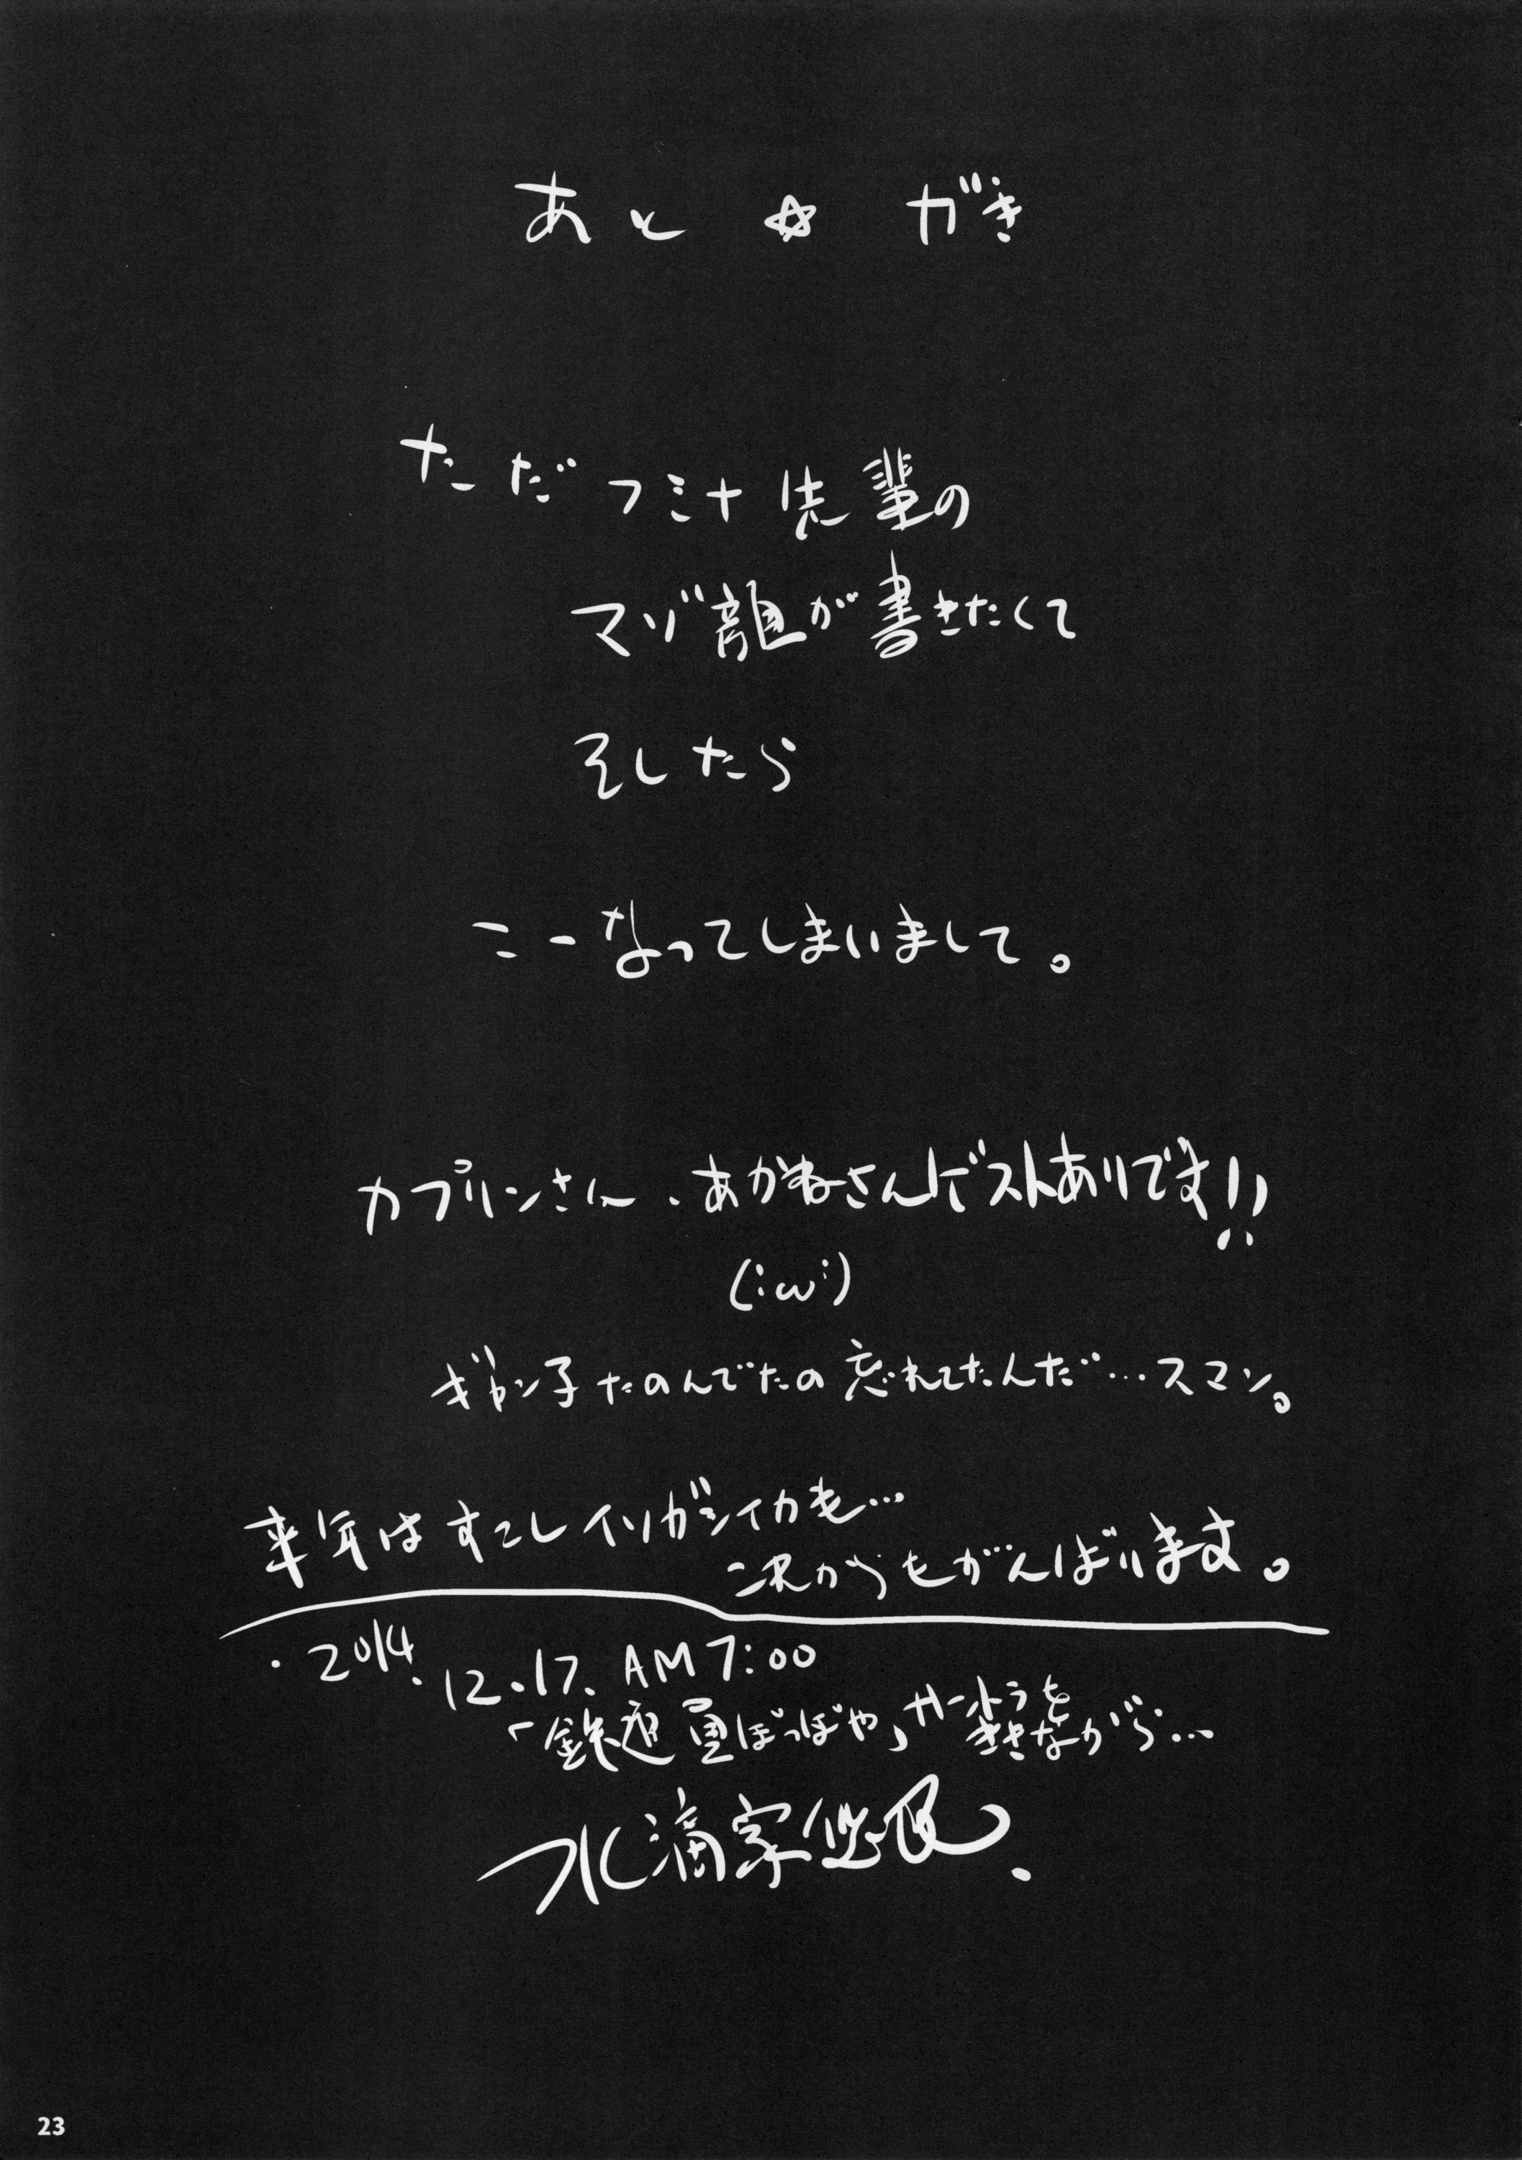 あと☆がき
ただフミナ先輩の
マゾ顔が書きたくて
そしたら
こーなってしまいまして。
カプリンさん、あかねさんゲストありです!!
(:ω:)
ギャン子たのんでたの忘れてたんだ…スマン。
来年はすこしイソガシイカも…
次からもがんばります。
・2014.12.17. AM7:00
「鉄道員ぽっぽや」サートラを
ききながら…
水滴家
23